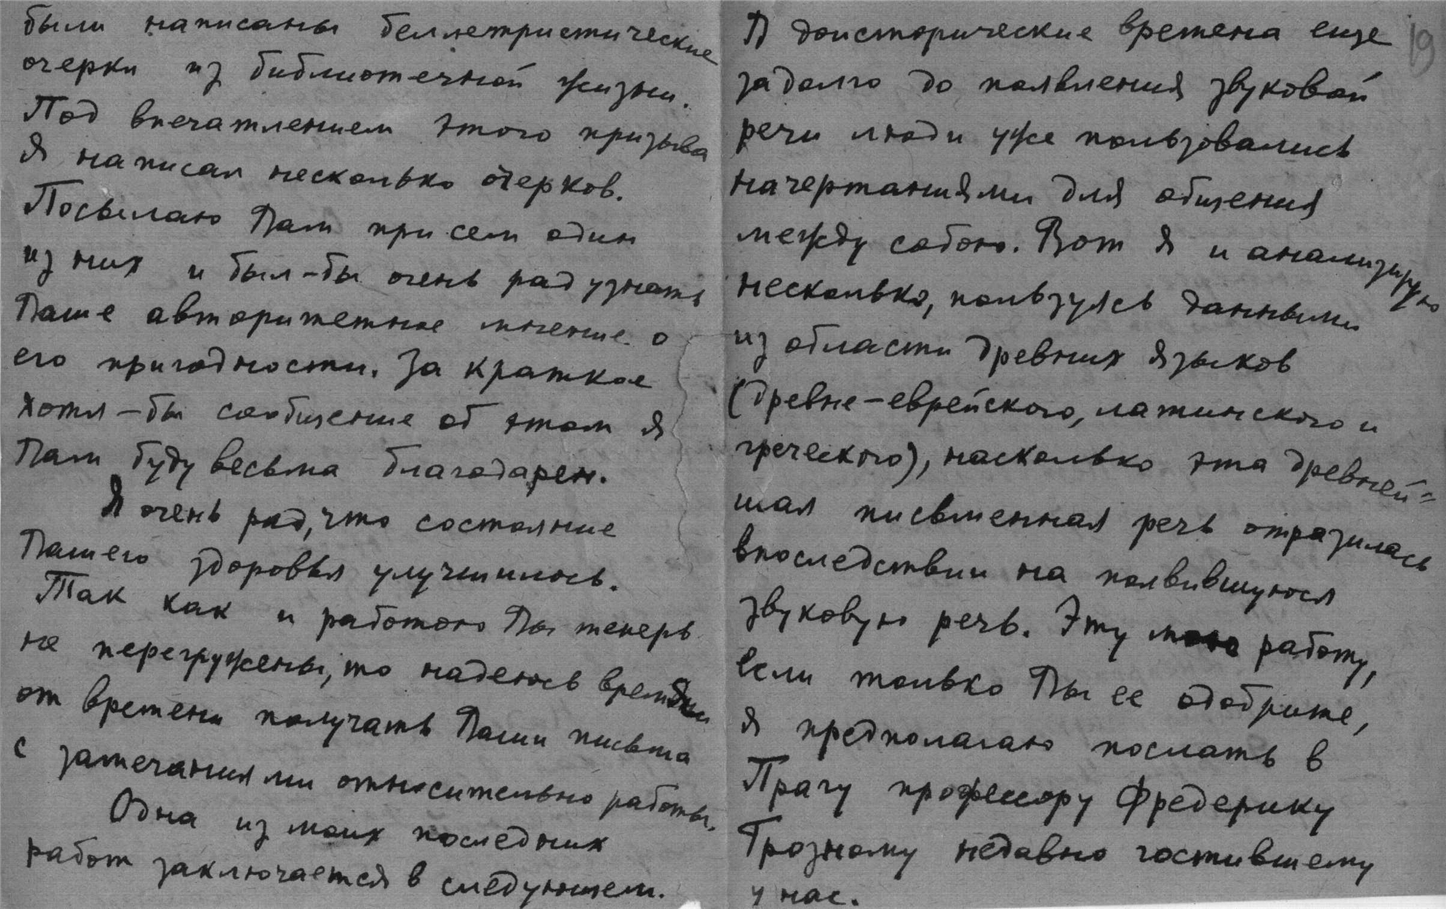 были написаны беллетристические
очерки из библиотечной жизни.
Под впечатлением этого призыва
я написал несколько очерков.
Посылаю Вам при сем один
из них и был-бы очень рад узнать
Ваше авторитетное мнение о
его пригодности. За краткое
хотя-бы сообщение об этом я
Вам буду весьма благодарен.
Я очень рад, что состояние
Вашего здоровья улучшилось.
Так как и работою Вы теперь
не перегружены, то надеюсь время
от времени получать Ваши письма
с замечаниями относительно работы.
Одна из моих последних
работ заключается в следующем.
19
В доисторические времена еще
задолго до появления звуковой
речи люди уже пользовались
начертаниями для общения
между собою. Вот я и анализирую
несколько, пользуясь данными
из области древних языков
(древне-еврейского, латинского и
греческого), насколько эта древней=
шая письменная речь отразилась
впоследствии на появившуюся
звуковую речь. Эту мою работу,
если только Вы ее одобрите,
я предполагаю послать в
Прагу профессору Фредерику
Грозному недавно гостившему
у нас.